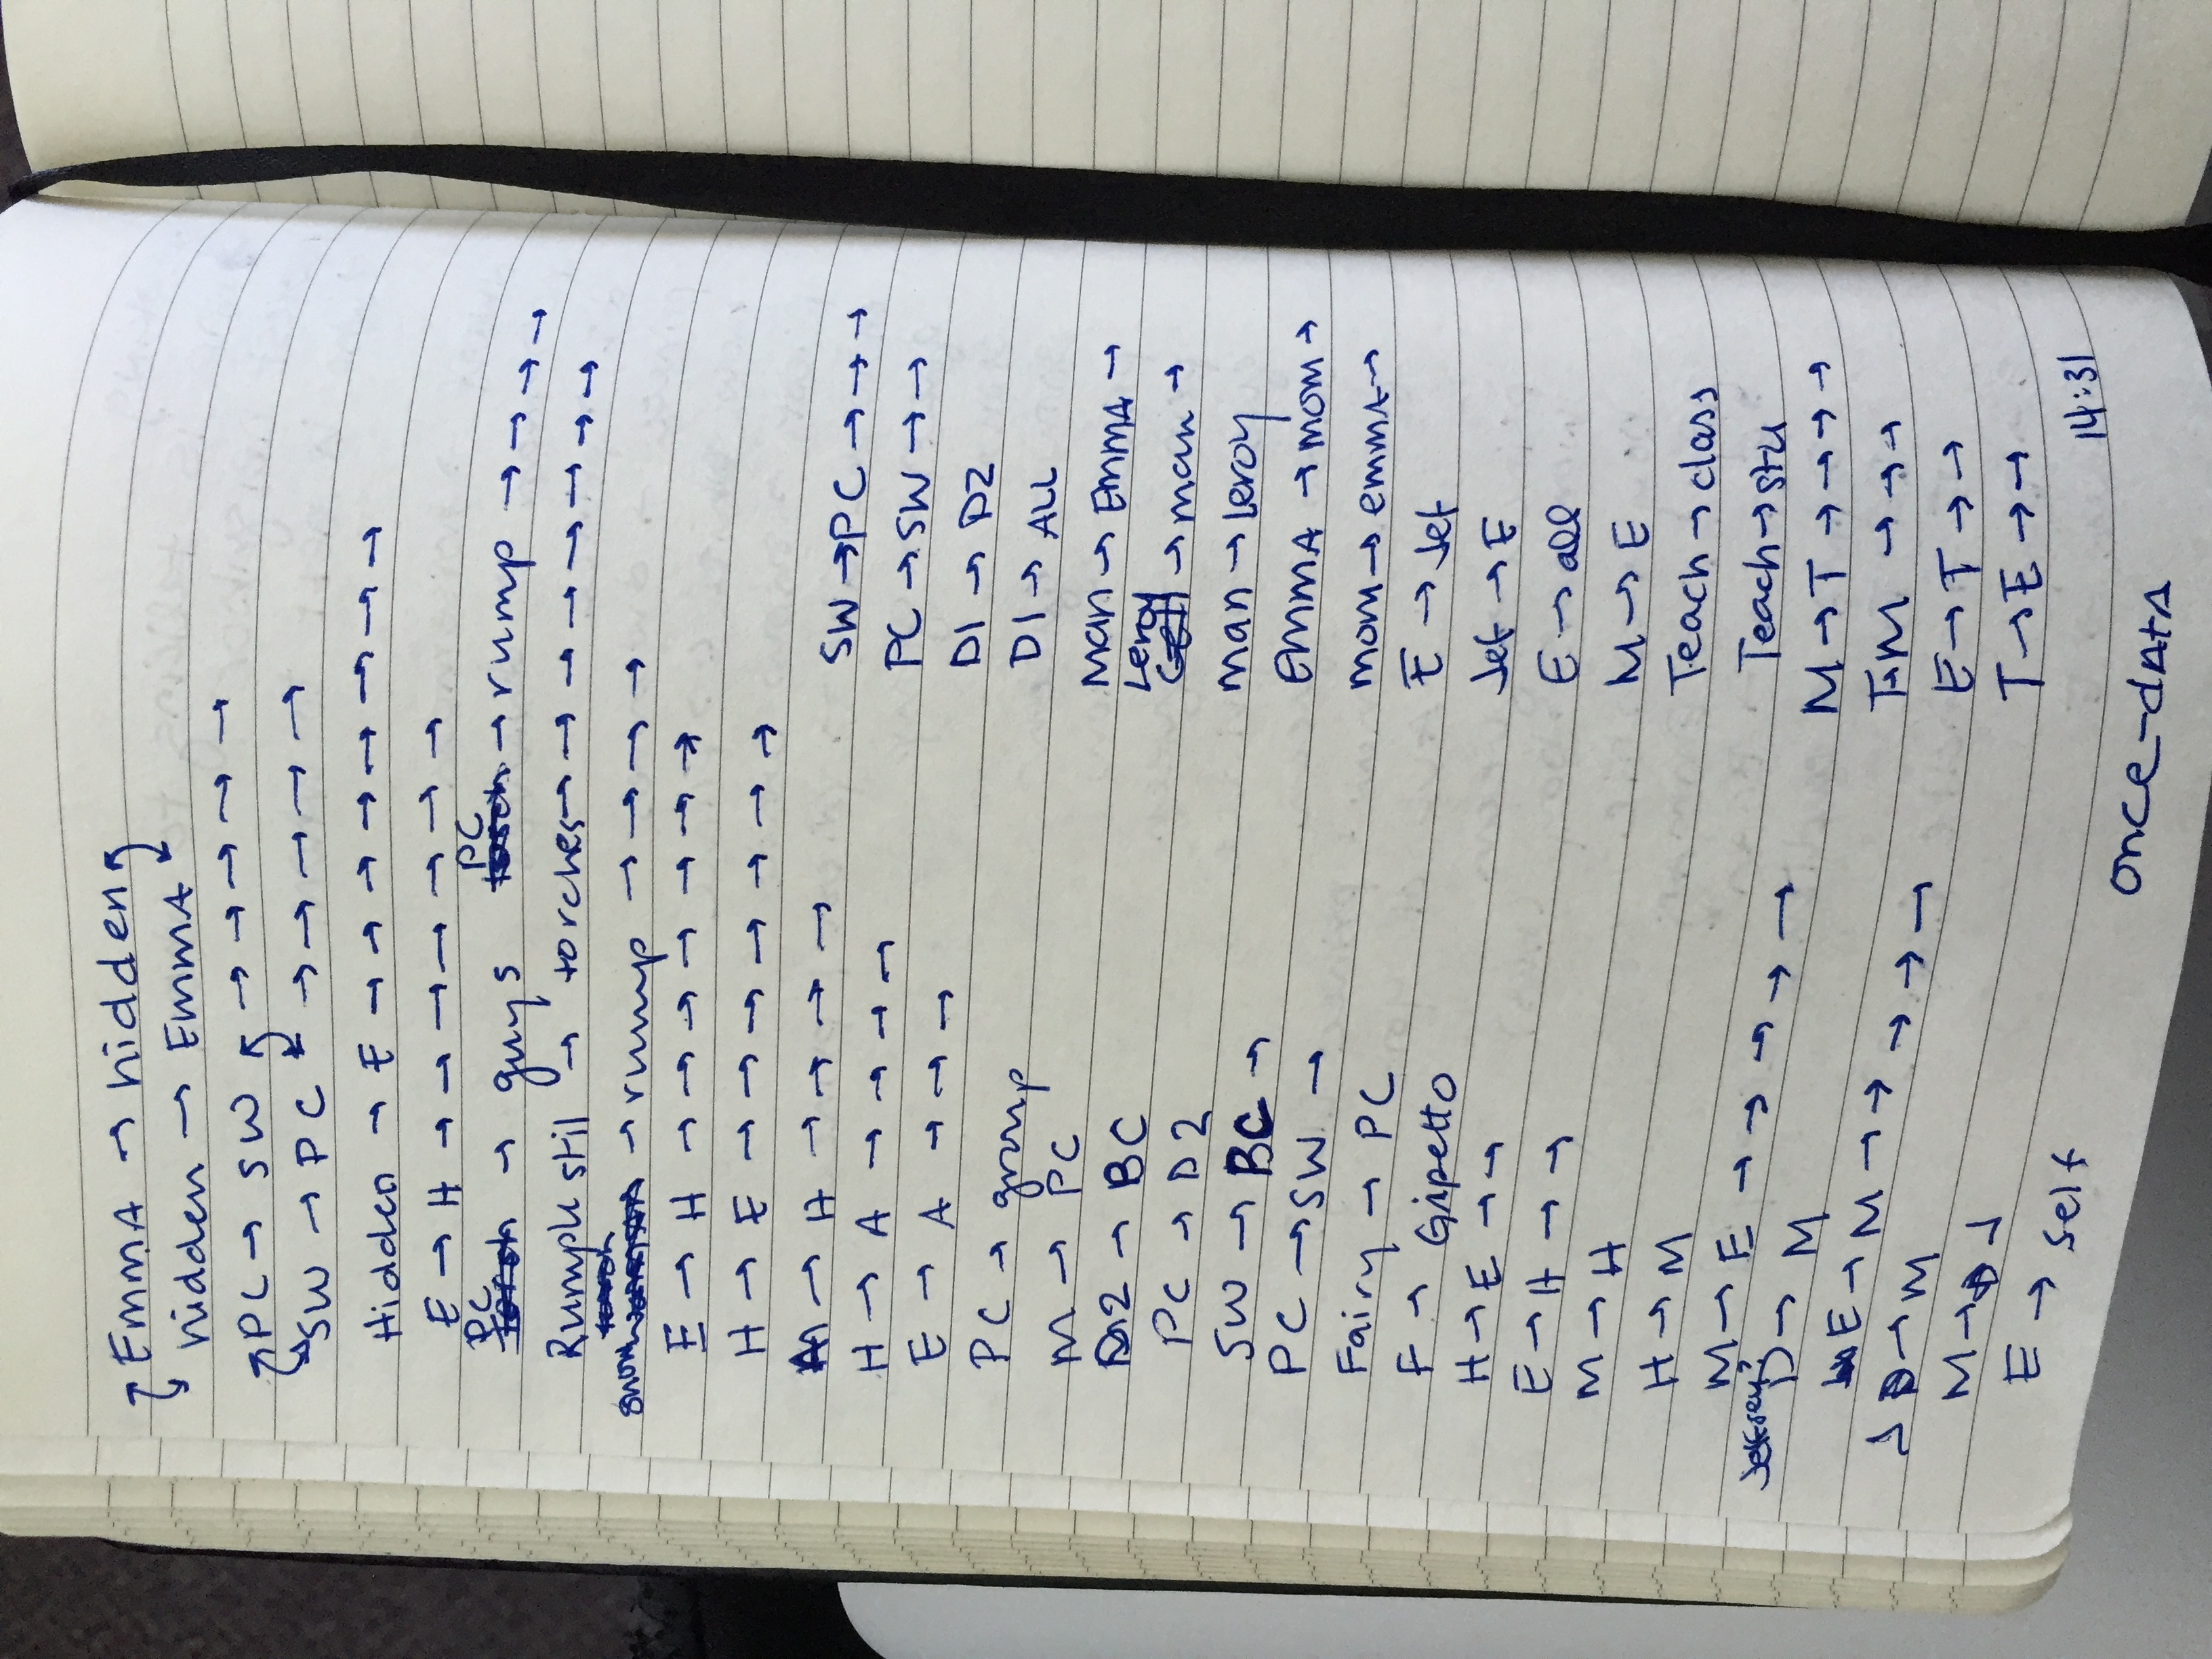 EMMA → hidden
hidden → EMMA
PC → SW → → → → →
SW → PC → → → → →
Hidden → E → → → → → → → →
E → H → → → → → → →
PC
torch → guys
PC
torch → rump → → → →
Rumple stil → torches → → → → → → → →
snow → rump → → → →
E → H → → → → → → →
H → E → → → → → → →
A → H → → → →
H → A → → → →
E → A → → →
PC → group
M → PC
D2 → BC
PC → D2
SW → BC →
PC → SW →
Fairy → PC
F → Gipetto
H → E → →
E → H → →
M → H
H → M
M → E → → → → →
Jeffrey?
D → M
E → M → → → → →
J → M
M → J
E → self
SW → PC → → →
PC → SW → →
D1 → D2
D1 → ALL
Man → EMMA →
Leroy
→ man →
man → Leroy
EMMA → mom →
mom → emmA →
E → Jef
Jef → E
E → all
M → E
Teach → class
Teach → stu
M → T → → → →
T → M → → →
E → T → →
T → E → →
14:31
once-dAtA